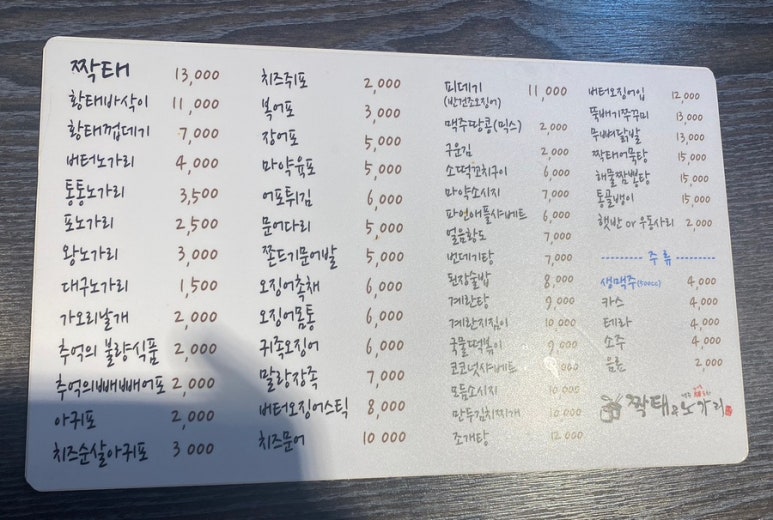 짝태 13,000
황태바삭이 11,000
황태껍데기 7,000
버터노가리 4,000
통통노가리 3,500
포노가리 2,500
왕노가리 3,000
대구노가리 1,500
가오리날개 2,000
추억의 불량식품 2,000
추억의빼빼어포 2,000
아귀포 2,000
치즈순살아귀포 3 000
치즈쥐포 2,000
복어포 3,000
장어포 5,000
마약육포 5,000
어포튀김 6,000
문어다리 5,000
쫀드기문어발 5,000
오징어촉채 6,000
오징어몸통 6,000
귀족오징어 6,000
말랑장족 7,000
버터오징어스틱 8,000
치즈문어 10 000
피데기 11,000
(반건조오징어)
맥주땅콩(믹스) 2,000
구운김 2,000
소떡꼬치구이 6,000
마약소시지 7,000
파인애플샤베트 6,000
얼음황도 7,000
번데기탕 7,000
된장술밥 8,000
계란탕 9,000
계란지짐이 10,000
국물떡볶이 9 000
코코넛샤베트 000
모듬소시지 10 000
만두김치찌개 10 000
조개탕 12 000
버터오징어입 12,000
뚝배기쭈꾸미 13,000
무뼈닭발 13,000
짝태어묵탕 15,000
해물짬뽕탕 15,000
통골뱅이 15,000
햇반 or 우동사리 2,000
주류
생맥주(500cc) 4,000
카스 4,000
테라 4,000
소주 4,000
음료 2,000
짝태&노가리